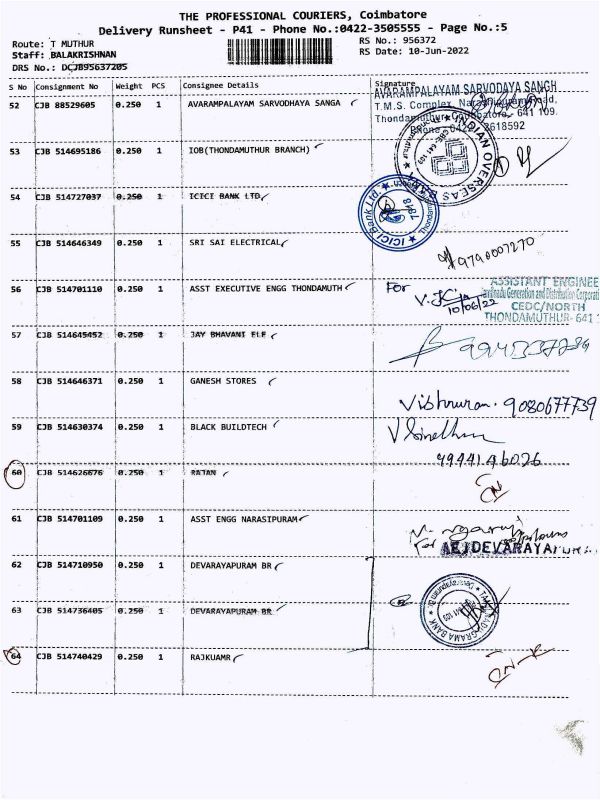 THE PROFESSIONAL COURIERS, Coimbatore
Delivery Runsheet - P41 - Phone No.:0422-3505555 - Page No.:5
Route: T MUTHUR
RS No.: 956372
Staff: BALAKRISHNAN
RS Date: 10-Jun-2022
DRS No.: DCJB95637205
S No Consignment No Weight PCS Consignee Details Signature
52 CJB 88529605 0.250 1 AVARAMPALAYAM SARVODHAYA SANGA
AVARAMPALAYAM SARVODAYA SANGH
T.M.S. Complex, Narasipuram Road,
Thondamuthur, Coimbatore, 641 109.
53 CJB 514695186 0.250 1 IOB(THONDAMUTHUR BRANCH)
INDIAN OVERSEAS BANK
54 CJB 514727037 0.250 1 ICICI BANK LTD
ICICI Bank Ltd.
7818
55 CJB 514646349 0.250 1 SRI SAI ELECTRICAL
9790007270
56 CJB 514701110 0.250 1 ASST EXECUTIVE ENGG THONDAMUTH
For
10/06/22
ASSISTANT ENGINEE
Tamilnadu Generation and Distribution Corporati
CEDC/NORTH
THONDAMUTHUR- 641 1
57 CJB 514645452 0.250 1 JAY BHAVANI ELE
58 CJB 514646371 0.250 1 GANESH STORES
9080677739
59 CJB 514630374 0.250 1 BLACK BUILDTECH
9944146026
60 CJB 514626676 0.250 1 RATAN
61 CJB 514701109 0.250 1 ASST ENGG NARASIPURAM
For
AE/DEVARAYAPURAM
62 CJB 514710950 0.250 1 DEVARAYAPURAM BR
63 CJB 514736405 0.250 1 DEVARAYAPURAM BR
64 CJB 514740429 0.250 1 RAJKUAMR